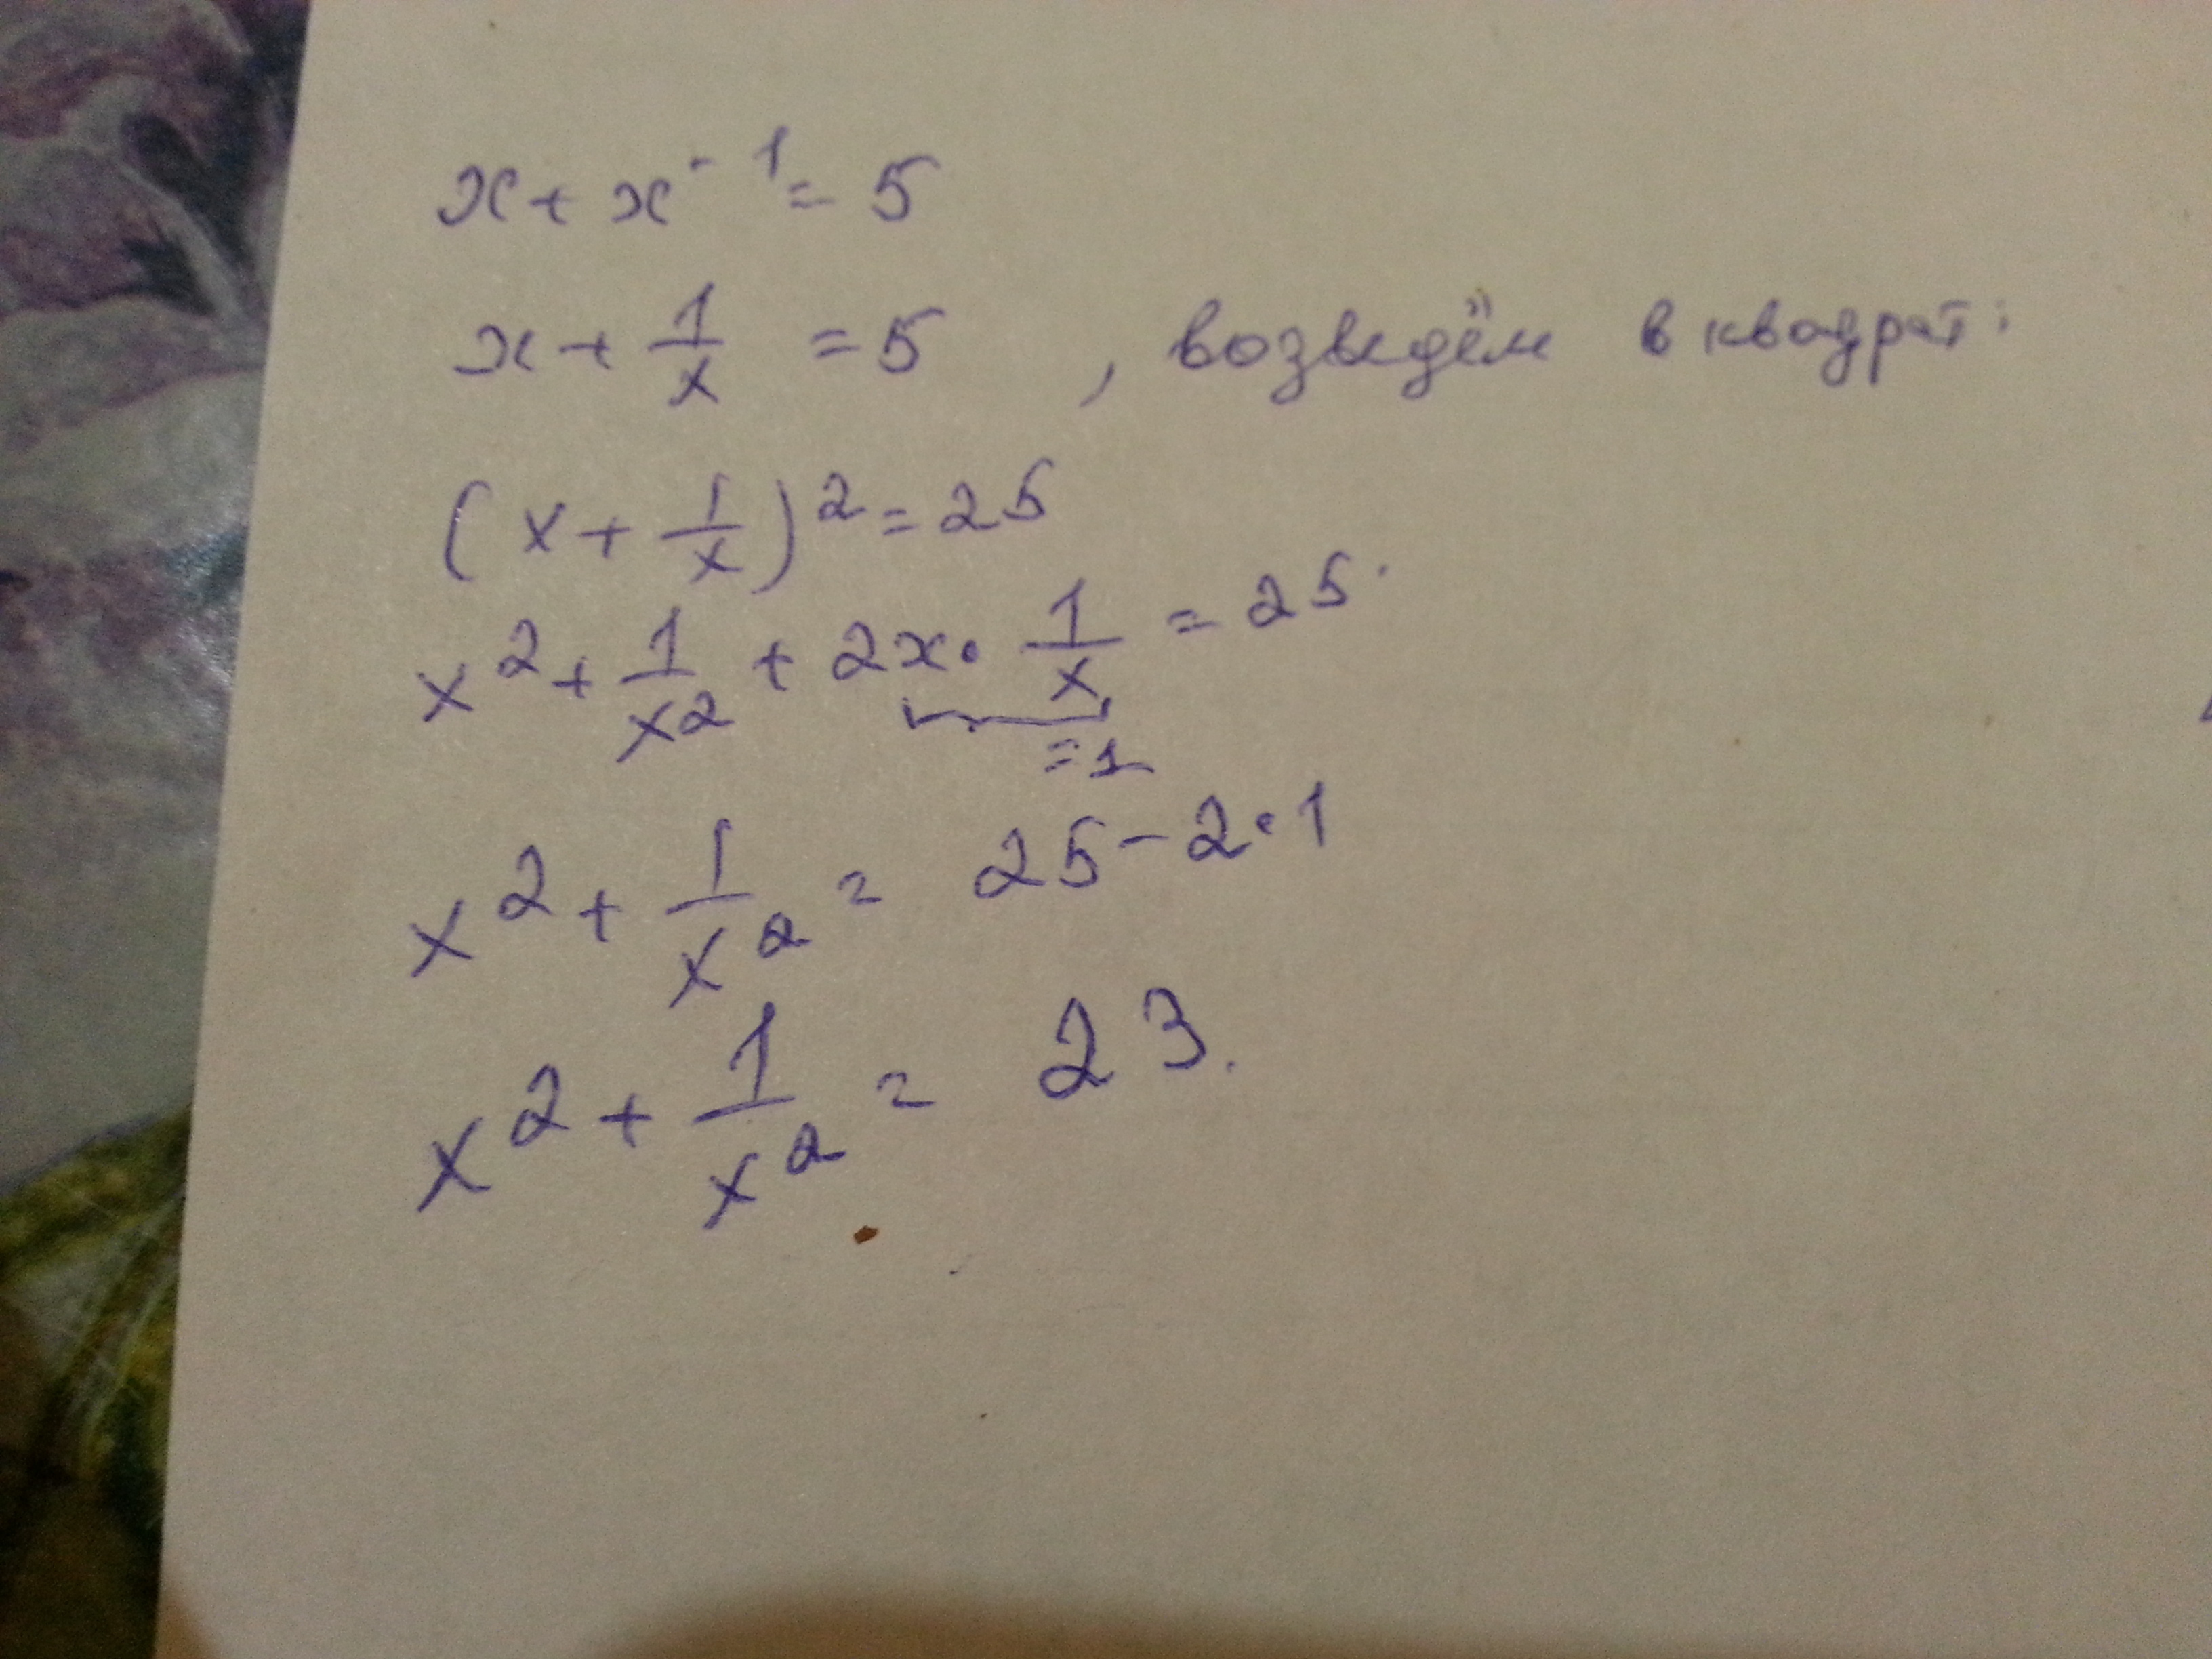 x + x⁻¹ = 5
x + 1/x = 5 , возведём в квадрат:
(x + 1/x)² = 25
x² + 1/x² + 2x · 1/x = 25.
= 1
x² + 1/x² = 25 - 2 · 1
x² + 1/x² = 23.